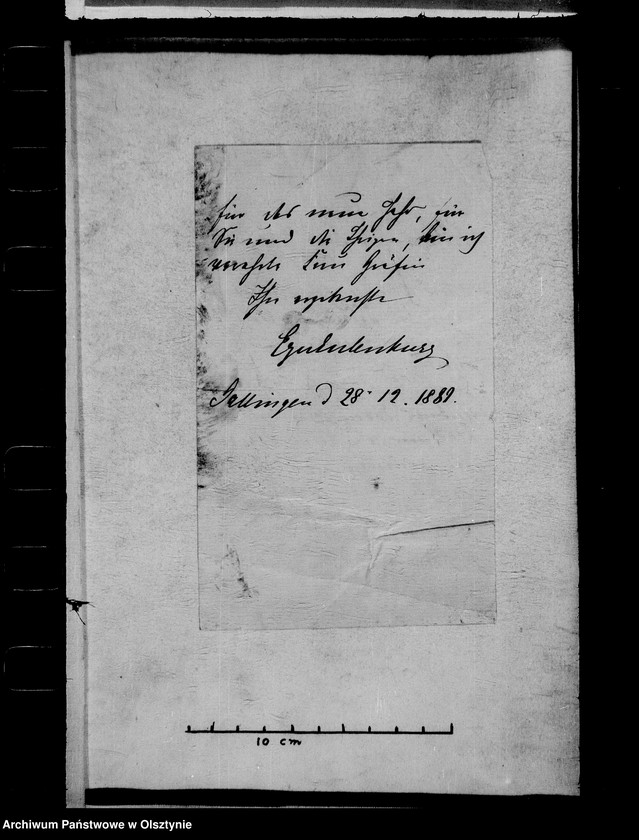 für das neue Jahr, für
Sie und die Ihrigen, bin ich
verehrte Frau Gräfin
Ihr ergebenster
Eulenburg
Gallingen d 28. 12. 1889.
10 cm
Archiwum Państwowe w Olsztynie